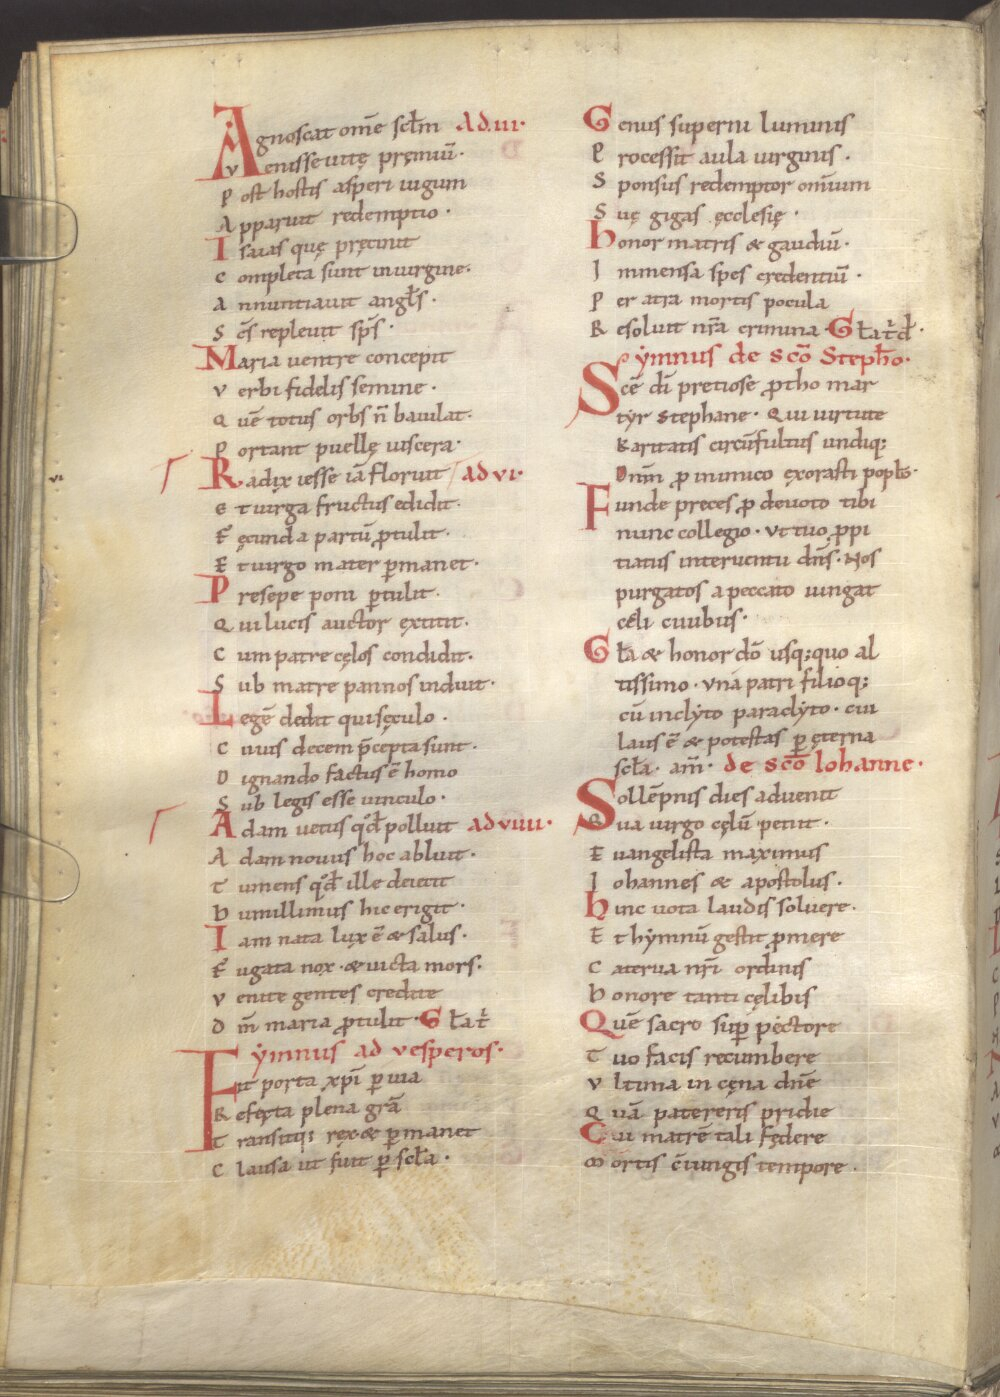 Agnoscat om̄e scl̄m Ad .iii·
Venisse uitę pręmiū·
Post hostis asperi iugum
Apparuit redemptio·
Isaias quę pręcinit
Completa sunt inuirgine·
Annuntiauit angl̄s·
Sc̄s repleuit sp̄s·
Maria uentre concepit
Verbi fidelis semine·
Quē totus orbs n̄ baiulat·
Portant puellę uiscera·
vi
Radix iesse iā floruit ad vi·
Et uirga fructus edidit·
Fęcunda partū ꝓtulit·
Et uirgo mater ꝑmanet·
Presepe poni ꝑtulit·
Qui lucis auctor extitit·
Cum patre cęlos condidit·
Sub matre pannos induit·
Legē dedit qui sęculo·
Cuius decem p̄cepta sunt·
Dignando factus ē homo
Sub legis esse uinculo·
Adam uetus qd̄ polluit ad viiii·
Adam nouus hoc abluit·
Tumens qd̄ ille deiecit
Humillimus hic erigit·
Iam nata lux ē & salus·
Fugata nox·& uicta mors·
Venite gentes credite
Dm̄ maria ꝓtulit· Gl̄a t̄
Ẏmnus ad vesperos·
Fit porta xp̄i ꝑuia
Refęrta plena gr̄a
Transitq; rex & ꝑmanet
Clausa ut fuit ꝑ scl̄a·
Genus superni luminis
Processit aula uirginis·
Sponsus redemptor omīum
Suę gigas ęcclesię·
Honor matris & gaudiū·
Immensa spes credentiū·
Per atra mortis pocula
Resoluit nr̄a crimina· Gl̄a t̄ d̄·
Ẏmnus de sc̄o Steph̄o·
Sc̄e dī pretiose ꝓtho mar
tẏr stephane· Qui uirtute
Karitatis circūfultus undiq;
Dnm̄ ꝓ inimico exorasti popl̄o·
Funde preces ꝓ deuoto tibi
nunc collegio· Vt tuo ꝓpi
tiatus interuentu dn̄s· Nos
purgatos a peccato iungat
cęli ciuibus·
Gl̄a & honor dō usq; quo al
tissimo· vna patri filioq;
cū inclẏto paraclẏto· cui
laus ē & potestas ꝑ ęterna
scl̄a· am̄· de sc̄o Iohanne·
Sollēpnis dies aduenit
Qua uirgo cęlū petiit·
Euangelista maximus
Iohannes & apostolus·
Hinc uota laudis soluere·
Et hẏmnū gestit ꝓmere
Caterua nr̄i ordinis
Honore tanti cęlibis
Quē sacro suꝑ pectore
Tuo facis recumbere
Vltima in cęna dn̄e
Quā patereris pridie
Cui matrē tali fędere
Mortis c̄iungis tempore·